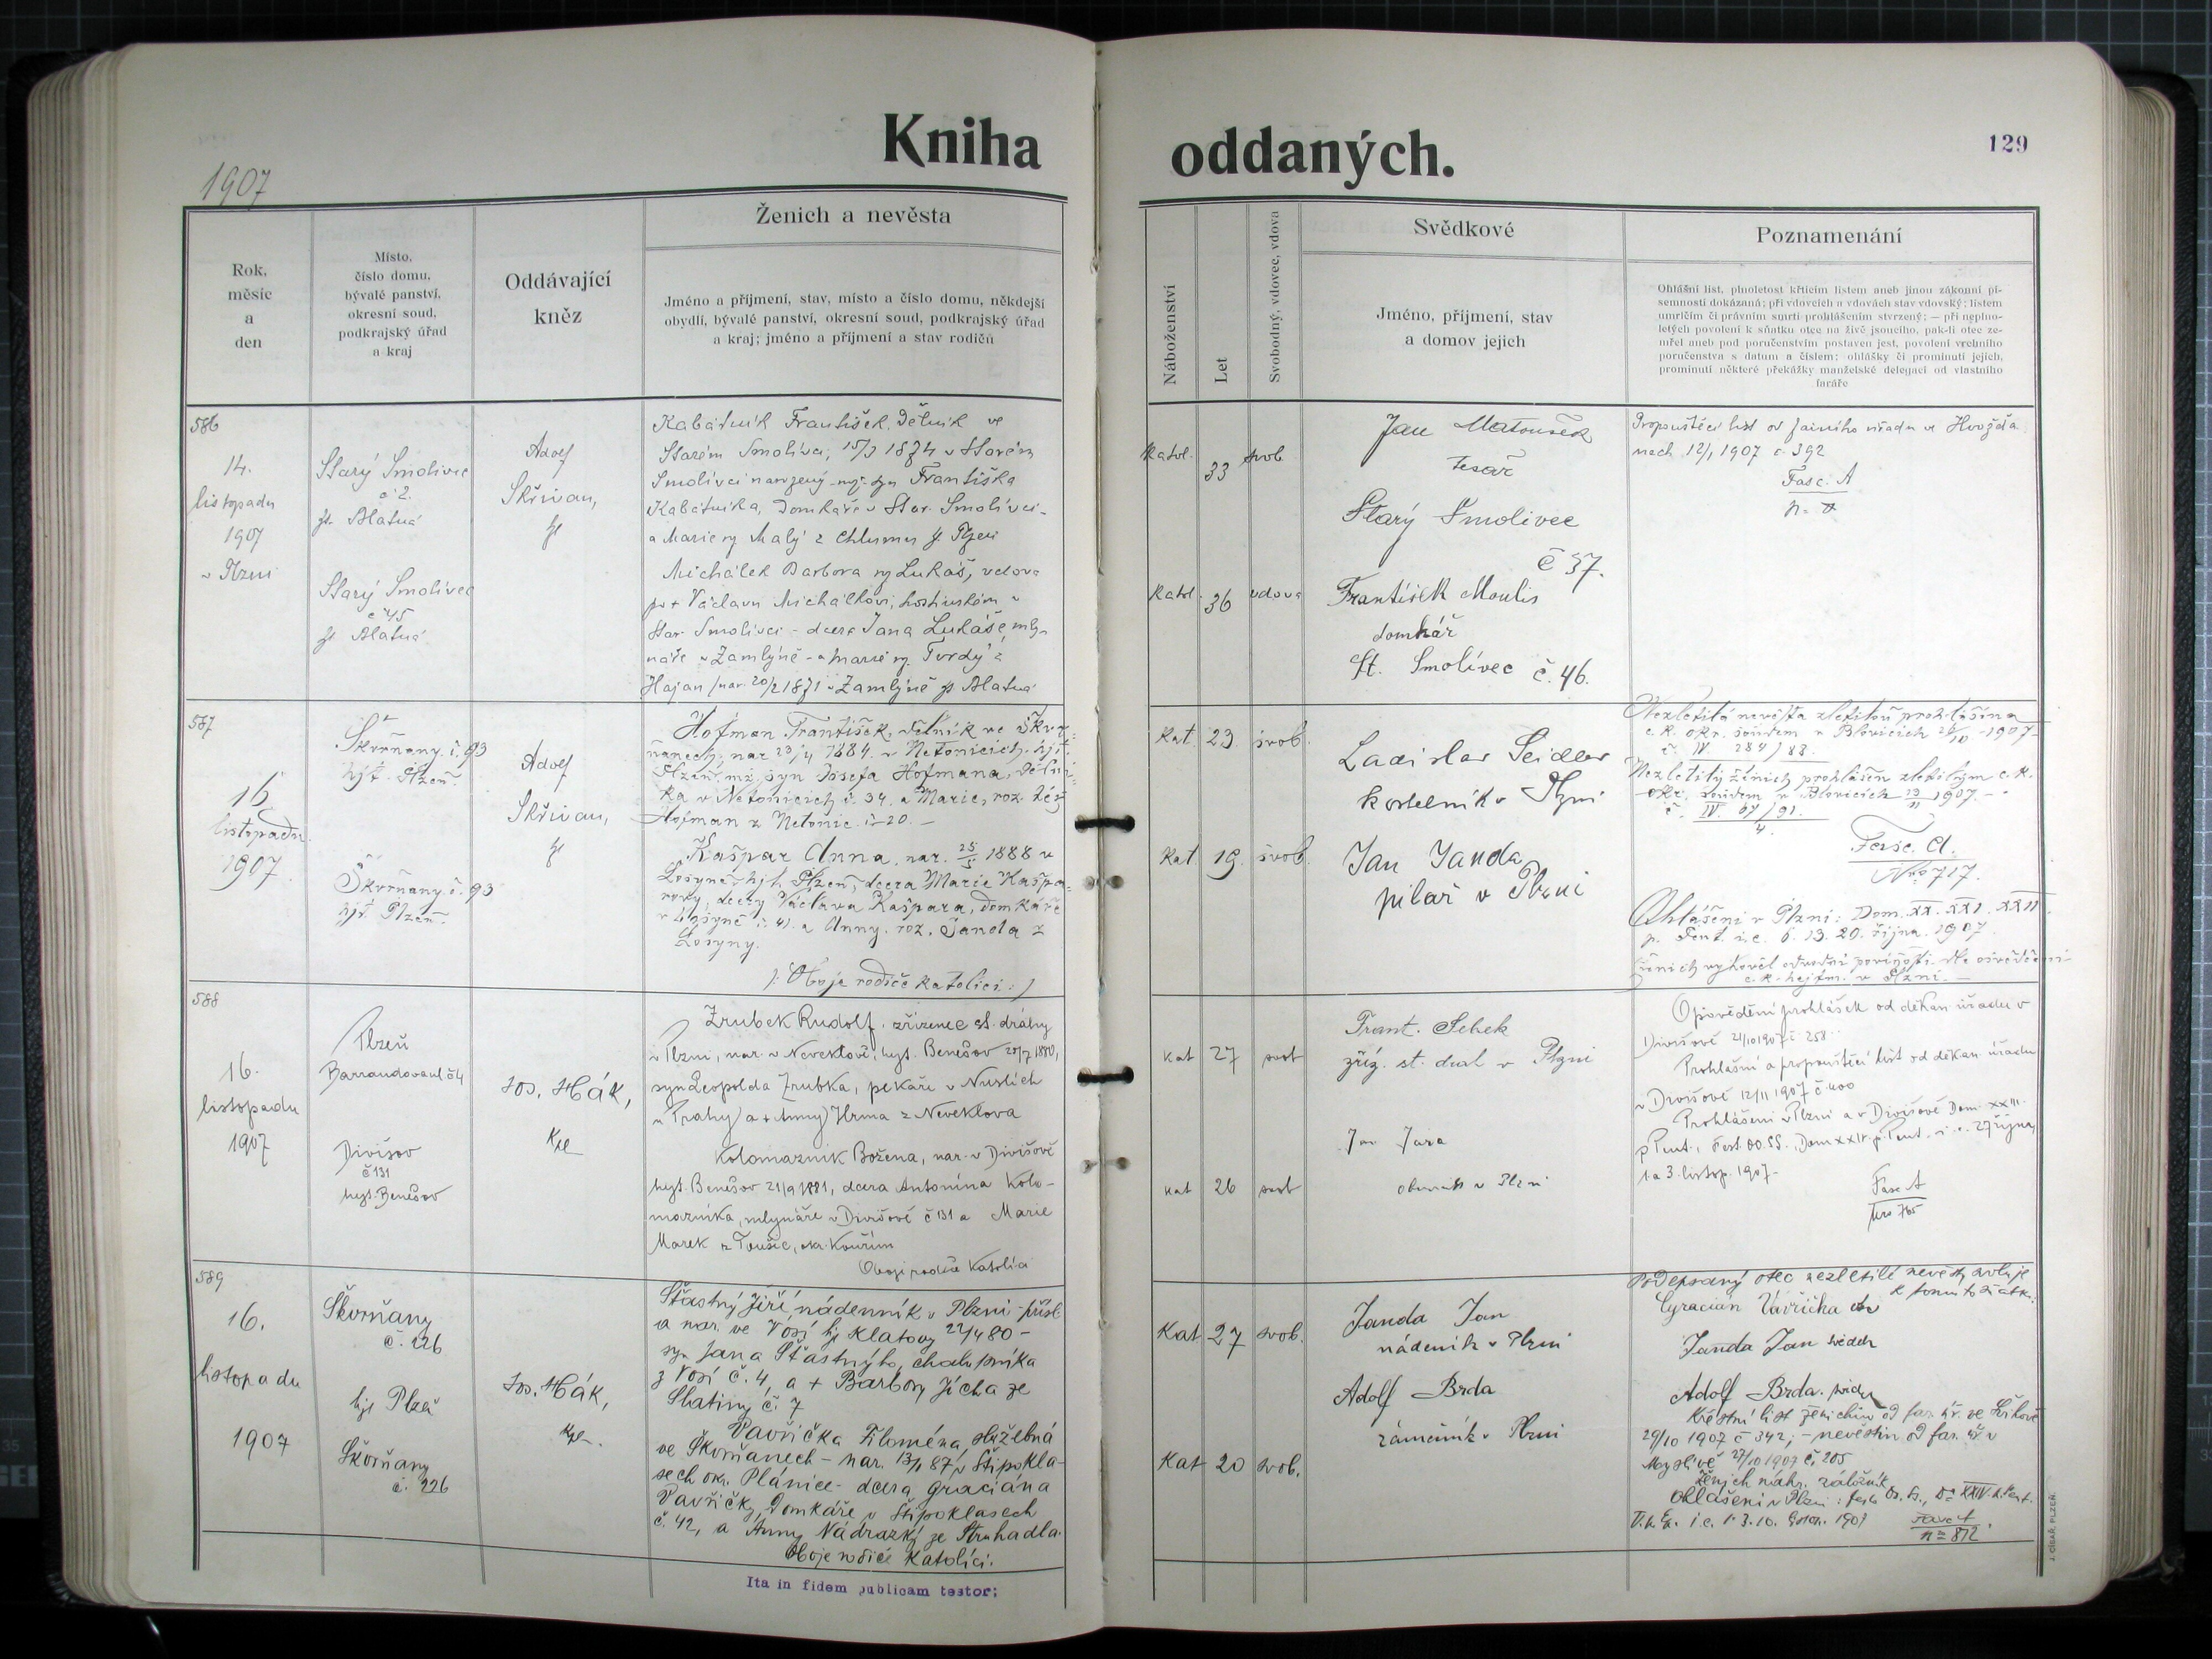 Kniha oddaných.
129
1907
Rok,
měsíc
a
den
Místo,
číslo domu,
bývalé panství,
okresní soud,
podkrajský úřad
a kraj
Oddávající
kněz
Ženich a nevěsta
Jméno a příjmení, stav, místo a číslo domu, někdejší
obydlí, bývalé panství, okresní soud, podkrajský úřad
a kraj; jméno a příjmení a stav rodičů
Náboženství
Let
Svobodný, vdovec, vdova
Svědkové
Jméno, příjmení, stav
a domov jejich
Poznamenání
Ohlášní list, plnoletost křticím listem aneb jinou zákonní pí-
semností dokázaná; při vdovcích a vdovách stav vdovský; listem
umrlčím či právním smrti prohlášením stvrzený; — při neplno-
letých povolení k sňatku otce na živě jsoucího, pak-li otec ze-
mřel aneb pod poručenstvím postaven jest, povolení vrchního
poručenstva s datum a číslem; ohlášky či prominutí jejich,
prominutí některé překážky manželské delegací od vlastního
faráře
586
14.
listopadu
1907
v Plzni
Starý Smolivec
č 2.
js. Blatná
Starý Smolivec
č 45
js Blatná
Adolf
Skřivan,
Kabátník František, dělník ve
Starém Smolivci, 15/3 1874 v Starém
Smolivci narozený syn Františka
Kabátníka, domkáře v Star. Smolivci -
a Marie Malý z Chlumu
Michálek Barbora Lukáš, vdova
po + Václavu Michálkovi, hostinském v
Star. Smolivci - dcera Jana Lukáše, mly-
náře v Zamlýně - a Marie Tvrdý z
Hajan /nar. 20/2 1871 v Zamlýně js Blatná
Katol.
33
svob.
Katol.
36
vdova
Jan Matoušek
tesař
Starý Smolivec
č 37.
František Moulis
domkář
St. Smolivec č. 46.
Propouštěcí list od farního úřadu ve Hvožďa
nech 12/1 1907 č. 392
Fasc. A
587
16
listopadu
1907
Škvrňany. č. 93
hjt. Plzeň.
Škvrňany. č. 93
hjt. Plzeň.
Adolf
Skřivan,
Hofman František, dělník ve Škvr-
ňanech, nar 23/4 1884. v Netonicích. hjt.
Plzeň, syn Josefa Hofmana, dělní-
ka v Netonicích č. 34. a Marie, roz.
Hofman z Netonic. č. 20. —
Kašpar Anna, nar. 25/5 1888 v
Losyně, hjt. Plzeň, dcera Marie Kašpa-
rovy, dcery Václava Kašpara, domkáře
v Losyně č. 41. a Anny. roz. Janda z
Losyny.
/: Oboje rodiče katolíci :/
Kat.
23.
svob.
Kat
19.
svob.
Ladislav Seidler
kostelník v Plzni
Jan Janda
pilař v Plzni
Nezletilá nevěsta zletilou prohlášena
c. k. okr. soudem v Blovicích 1907
č. IV 284/83.
Nezletilý ženich prohlášen zletilým c. k.
okr. soudem v Blovicích 13/11 1907. —
Fasc. A.
Nro 717.
Ohlášeni v Plzni: Dom. XX. XXI. XXII
p. Pent. i. e. 6. 13. 20. října. 1907.
ženich vykonal odvodní povinnosti dle osvědčení
c. k. hejtm. v Plzni. —
588
16.
listopadu
1907
Plzeň
Barrandova ul č 4
Divišov
č 131
hejt. Benešov
Jos. Hák,
Zrubek Rudolf, zřízenec st. dráhy
v Plzni, nar. v Neveklově, hejt. Benešov 20/7 1880,
syn Leopolda Zrubka, pekaře v Nuslích
u Prahy a + Anny Hrma z Neveklova
Kolomazník Božena, nar. v Divišově
hejt. Benešov 21/9 1881, dcera Antonína Kolo-
mazníka, mlynáře v Divišově č 131 a Marie
Marek z Toušic, okr. Kouřim
Oboji rodiče Katolíci
kat
27
svob
kat
26
svob
Frant. Šebek
zříz. st. drah v Plzni
Jan Jara
obuvník v Plzni
Opovědění prohlášek od děkan. úřadu v
Divišově 21/10 1907 č 258
Prohlášní a propouštěcí list od děkan. úřadu
v Divišově 12/11 1907 č. 400
Prohlášeni v Plzni a v Divišově Dom. XXIII.
p Pent., Fest. OO. SS., Dom XXIV. p. Pent. i. e. 27 října,
1. a 3. listop. 1907 -
Fasc A
Nro 765
589
16.
listopadu
1907
Škvrňany
č. 226
hjt Plzeň
Škvrňany
č. 226
Jos. Hák,
Šťastný Jiří, nádenník v Plzni - přísl.
a nar. ve Vosí hj Klatovy 22/4 80 -
syn Jana Šťastnýho, chalupníka
z Vosí č. 4, a + Barbory Jícha ze
Slatiny č. 7
Vavřička Filoména, služebná
ve Škvrňanech - nar. 13/1 87 v Štipokla-
sech okr. Plánice - dcera Graciána
Vavřičky, domkáře v Štipoklasech
č. 42, a Anny Nádrazký ze Struhadla.
Oboje rodiče Katolíci.
Kat
27
svob.
Kat
20
svob.
Janda Jan
nádeník v Plzni
Adolf Brda
zámečník v Plzni
Podepsaný otec nezletilé nevěsty svoluje
k tomuto sňatku:
Gyracian Vavřička
Janda Jan svědek
Adolf Brda. svědek
Křestní list ženichův od far. úř. ve
29/10 1907 č 342, - nevěstin od far. úř. v
Myslivě 27/10 1907 č. 205
Ženich náhr. záložník
Ohlášeni v Plzni: festo Os. Ss., XXIV. p. Pent.
i. e. 1. 3. 10. 1907
Fasc A
n = 872
Ita in fidem publicam testor:
J. CÍSAŘ, PLZEŇ.